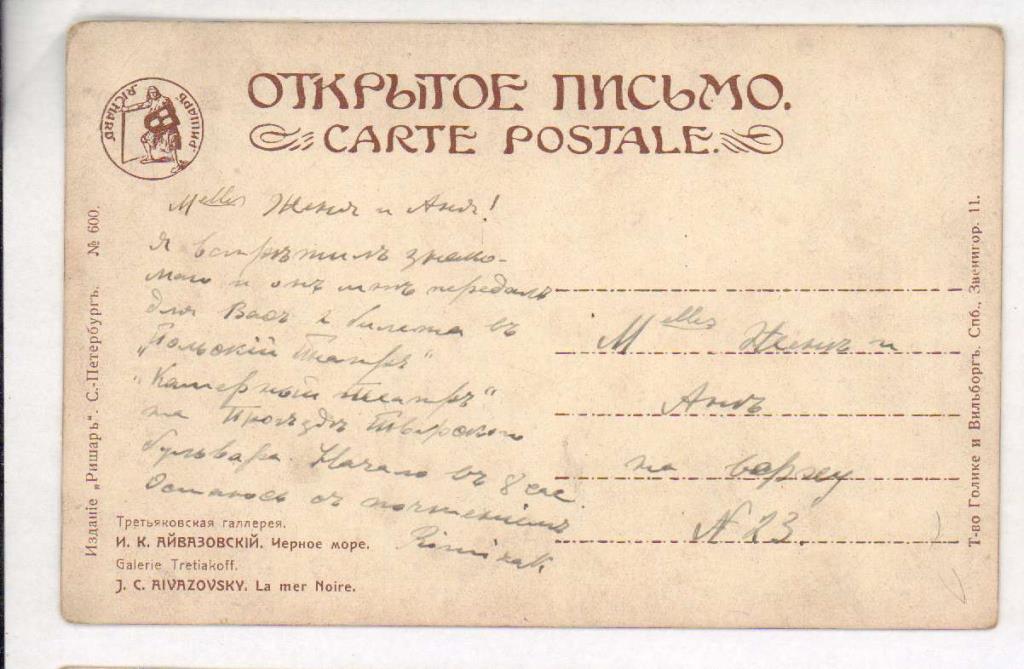 ОТКРЫТОЕ ПИСЬМО.
CARTE POSTALE.
РИШАРЪ RICHARD
Изданіе „Ришаръ“. С.-Петербургъ. № 600.
Melles Женѣ и Анѣ!
Я встрѣтилъ знако-
маго и онъ мнѣ передалъ
для Васъ 2 билета въ
„Польскій Театръ“
„Камерный театръ“
на Проѣздѣ Тверского
бульвара. Начало въ 8 час
Остаюсь съ почтеніемъ
Третьяковская галлерея.
И. К. АЙВАЗОВСКІЙ. Черное море.
Galerie Tretiakoff.
J. C. AIVAZOVSKY. La mer Noire.
Melles Женѣ и
Анѣ
на верху
N 23.
Т-во Голике и Вильборгъ. Спб., Звенигор. 11.